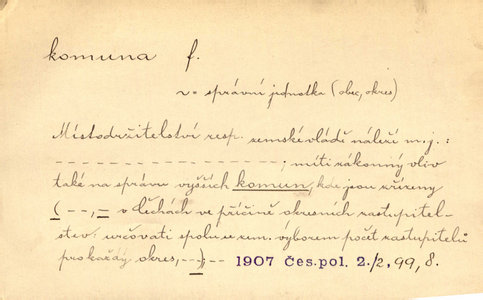 komuna f.
~ = správní jednotka (obec, okres)
Místodržitelství resp. zemské vládě náleží m. j. :
- - - - - - - - - - - - - - - - - - - ; míti zákonný vliv
také na správu vyšších komun, kde jsou zřízeny
( - -, = v Čechách ve příčině okresních zastupitel-
stev: určovati spolu se zem. výborem počet zastupitelů
pro každý okres, - - ), - - 1907 Čes. pol. 2./2, 99, 8.